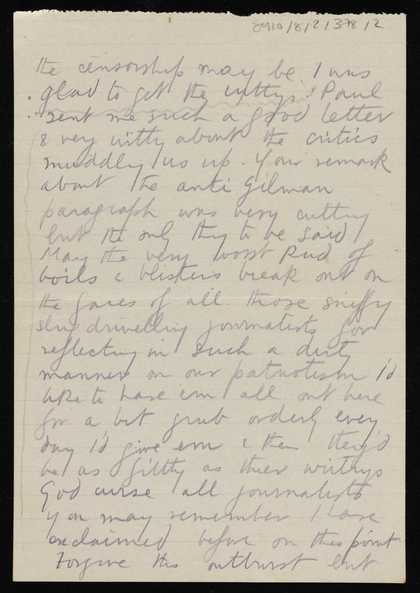 8910/8/2/378/2
the censorship may be. I was
glad to get the cuttings. Paul
sent me such a good letter
& very witty about the critics
muddling us up. Your remark
about the anti Gilman
paragraph was very cutting
but the only thing to be said
May the very worst kind of
boils & blisters break out on
the faces of all those sniffy
drivelling journalists for
reflecting in such a dirty
manner on our patriotism I'd
like to have em all out here
for a bit grub orderly every
day I'd give em & then they'd
be as filthy as their writings
God curse all journalists
you may remember I have
exclaimed before on this point
Forgive this outburst but